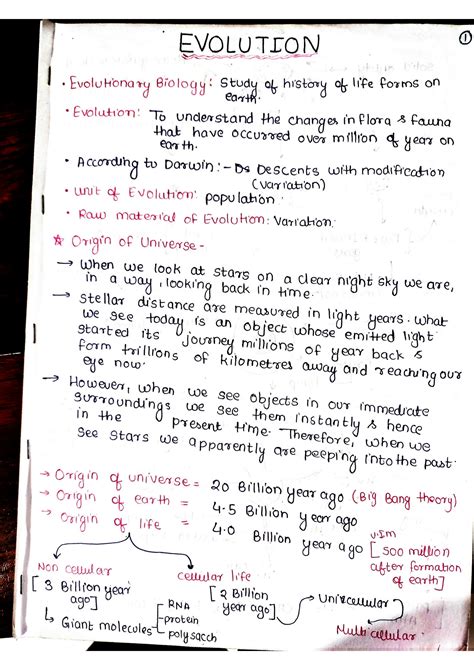 EVOLUTION
1
• Evolutionary Biology: Study of history of life forms on
earth.
• Evolution: To understand the changes in flora & fauna
that have occurred over million of year on
earth.
• According to Darwin:- Descents with modification
(variation)
• Unit of Evolution: population
• Raw material of Evolution: Variation.
☆ Origin of Universe -
→ When we look at stars on a clear night sky we are,
in a way, looking back in time.
→ Stellar distance are measured in light years. What
we see today is an object whose emitted light
started its journey millions of year back &
form trillions of kilometres away and reaching our
eye now.
→ However, when we see objects in our immediate
surroundings we see them instantly & hence
in the present time. Therefore, when we
see stars we apparently are peeping into the past.
→ Origin of universe = 20 Billion year ago (Big Bang theory)
→ Origin of earth = 4.5 Billion year ago
→ Origin of life = 4.0 Billion year ago [500 million
v.Im
after formation
of earth]
Non cellular
[3 Billion year
ago]
↳ Giant molecules
RNA
protein
polysacch
cellular life
[2 Billion
year ago]
→ Unicellular
Multicellular